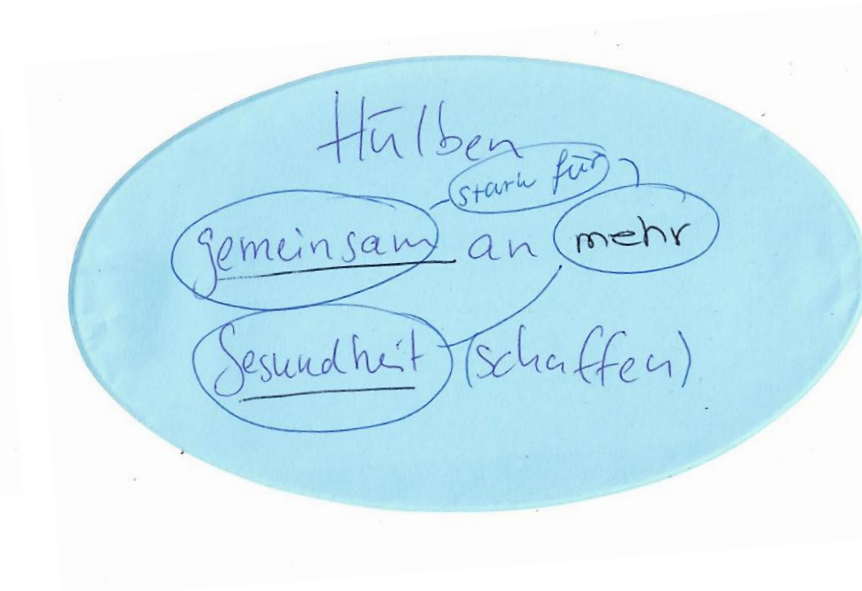 Hülben
stark für
gemeinsam an mehr
Gesundheit (schaffen)